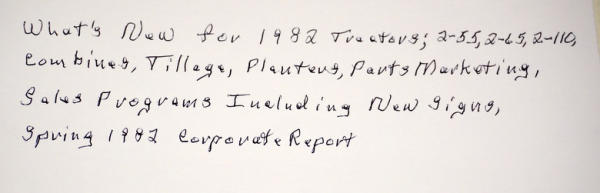 What's New for 1982 Tractors; 2-55, 2-65, 2-110,
Combines, Tillage, Planters, Parts Marketing,
Sales Programs Including New Signs,
Spring 1982 Corporate Report